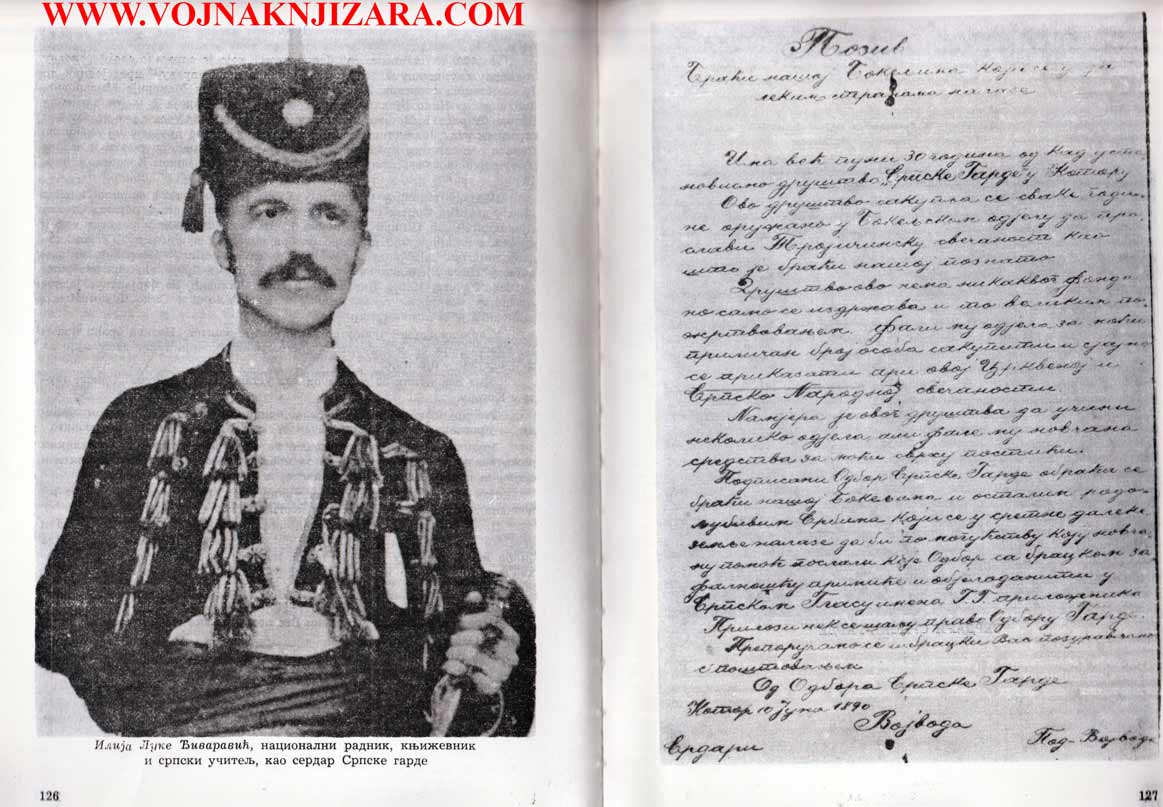 WWW.VOJNAKNJIZARA.COM
Илија Луке Ђиваравић, национални радник, књижевник
и српски учитељ, као сердар Српске гарде
126
Позив
Браћи нашој Бокељима који се у да
леким странама налазе
Има већ пуни 30 година од кад уста
новљано друштво Српске Гарде у Котору
Ово друштво сакупља се сваке годи-
не оружано у Бокељском одјелу да про-
слави Тројичинску свечаност као
што је браћи нашој познато
Друштво ово нема никаквог фонда
но само се издржава и то великим по
жртвовањем. Фали му одјела за моћи
приличан број особа сакупити и сјајно
се приказати при овој Црквеној и
Српско Народној свечаности
Намјера је овог друштва да учини
неколико одјела, али фале му новчана
средства за моћи сврху постићи.
Подписани Одбор Српске Гарде обраћа се
браћи нашој Бокељима и осталим родо-
љубивим Србима који се у сретне далеке
земље налазе да би по могућству коју новча
ну помоћ послали које Одбор са брацком за
фалношћу примиће и објелоданити у
Српском Гласу имена Г.Г. приложника
Прилози нек се шаљу право Одбору Гарде.
Препоручамо се и брацки Вас поздрављамо
с поштовањем
Од Одбора Српске Гарде
Котор 10 Јуна 1890
Војвода
Под-Војвода
Сердари
127